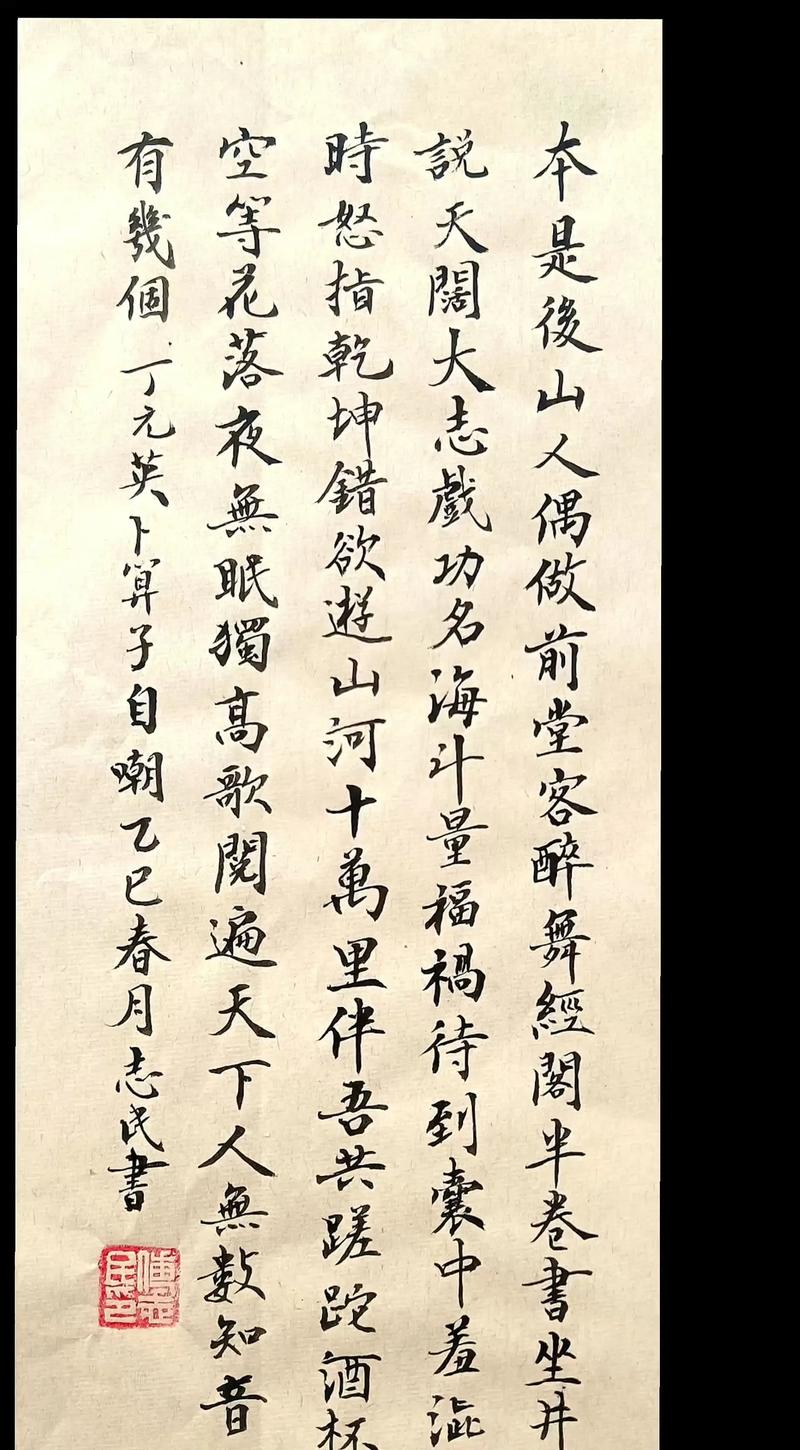 本是後山人偶做前堂客醉舞經閣半卷書坐井
説天闊大志戲功名海斗量福禍待到囊中羞澁
時怒指乾坤錯欲遊山河十萬里伴吾共蹉跎酒杯
空等花落夜無眠獨高歌閱遍天下人無數知音
有幾個 丁元英卜算子自嘲乙巳春月志民書